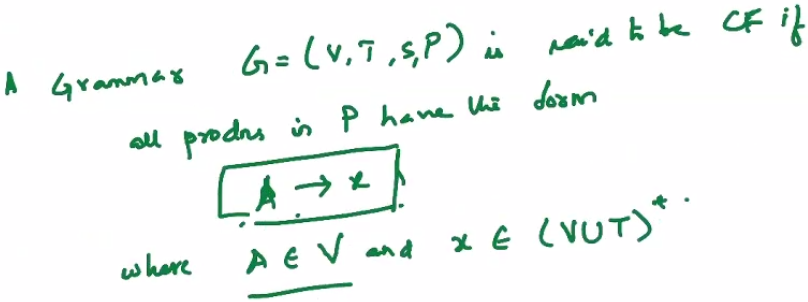 A Grammar G = (V, T, S, P) is said to be CF if
all prodns in P have the form
A → x
where A ∈ V and x ∈ (V∪T)*.